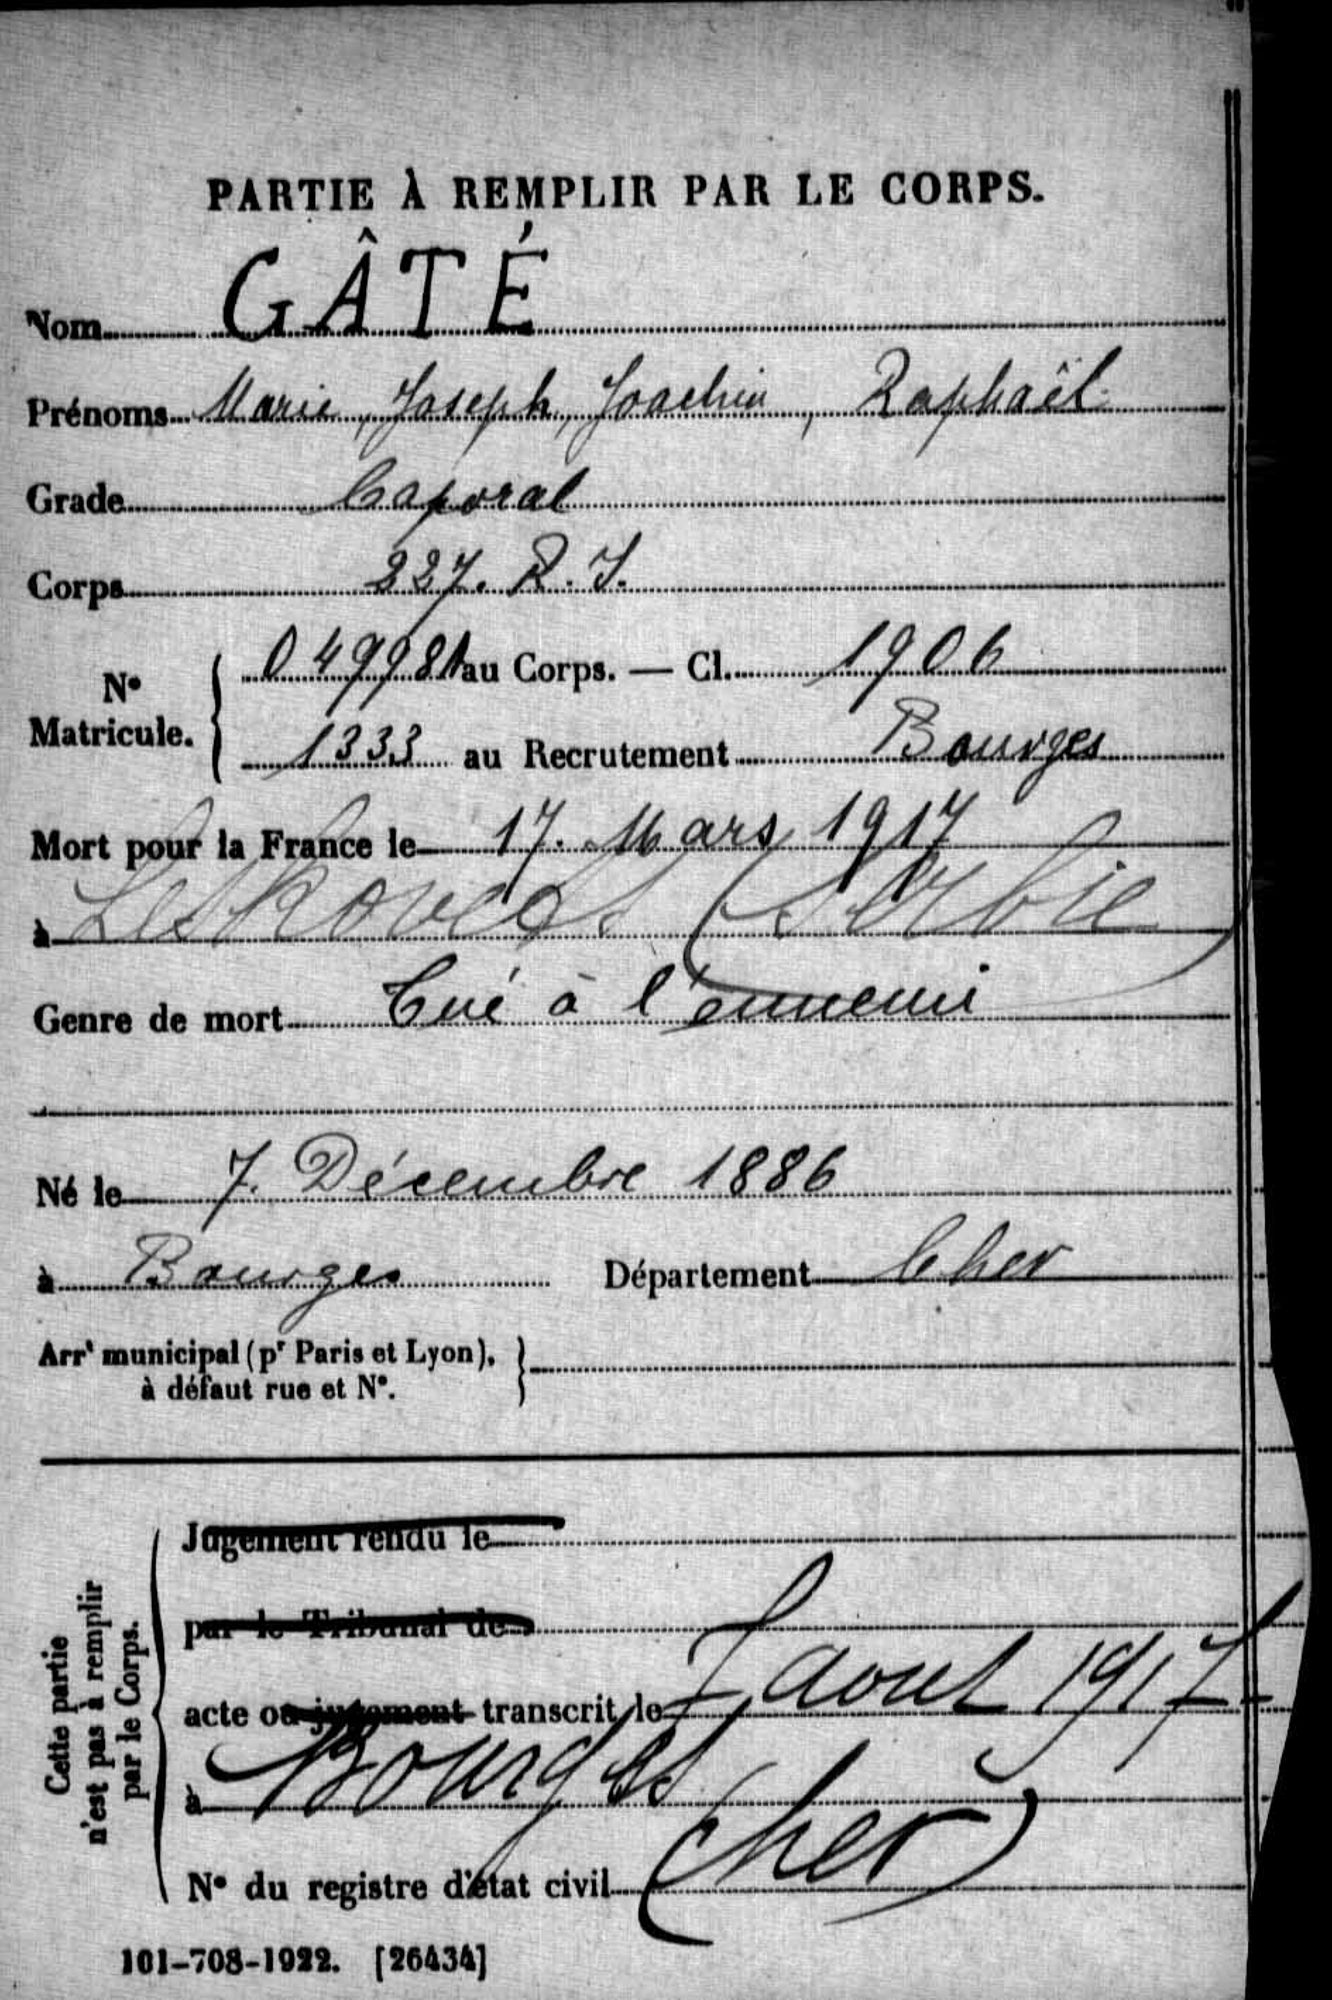 PARTIE À REMPLIR PAR LE CORPS.
Nom GÂTÉ
Prénoms Marie, Joseph, Joachim, Raphaël
Grade Caporal
Corps 227. R. I.
N° Matricule. { 049981 au Corps. — Cl. 1906
1333 au Recrutement Bourges
Mort pour la France le 17. Mars 1917
à (Serbie)
Genre de mort Tué à l'ennemi
Né le 7. Décembre 1886
à Bourges Département Cher
Arr<sup>t</sup> municipal (p<sup>r</sup> Paris et Lyon), }
à défaut rue et N°.
Cette partie n'est pas à remplir par le Corps.
Jugement rendu le
par le Tribunal de
acte ou jugement transcrit le 7 aout 1917
à Bourges
(Cher)
N° du registre d'état civil
101-708-1922. [26434]